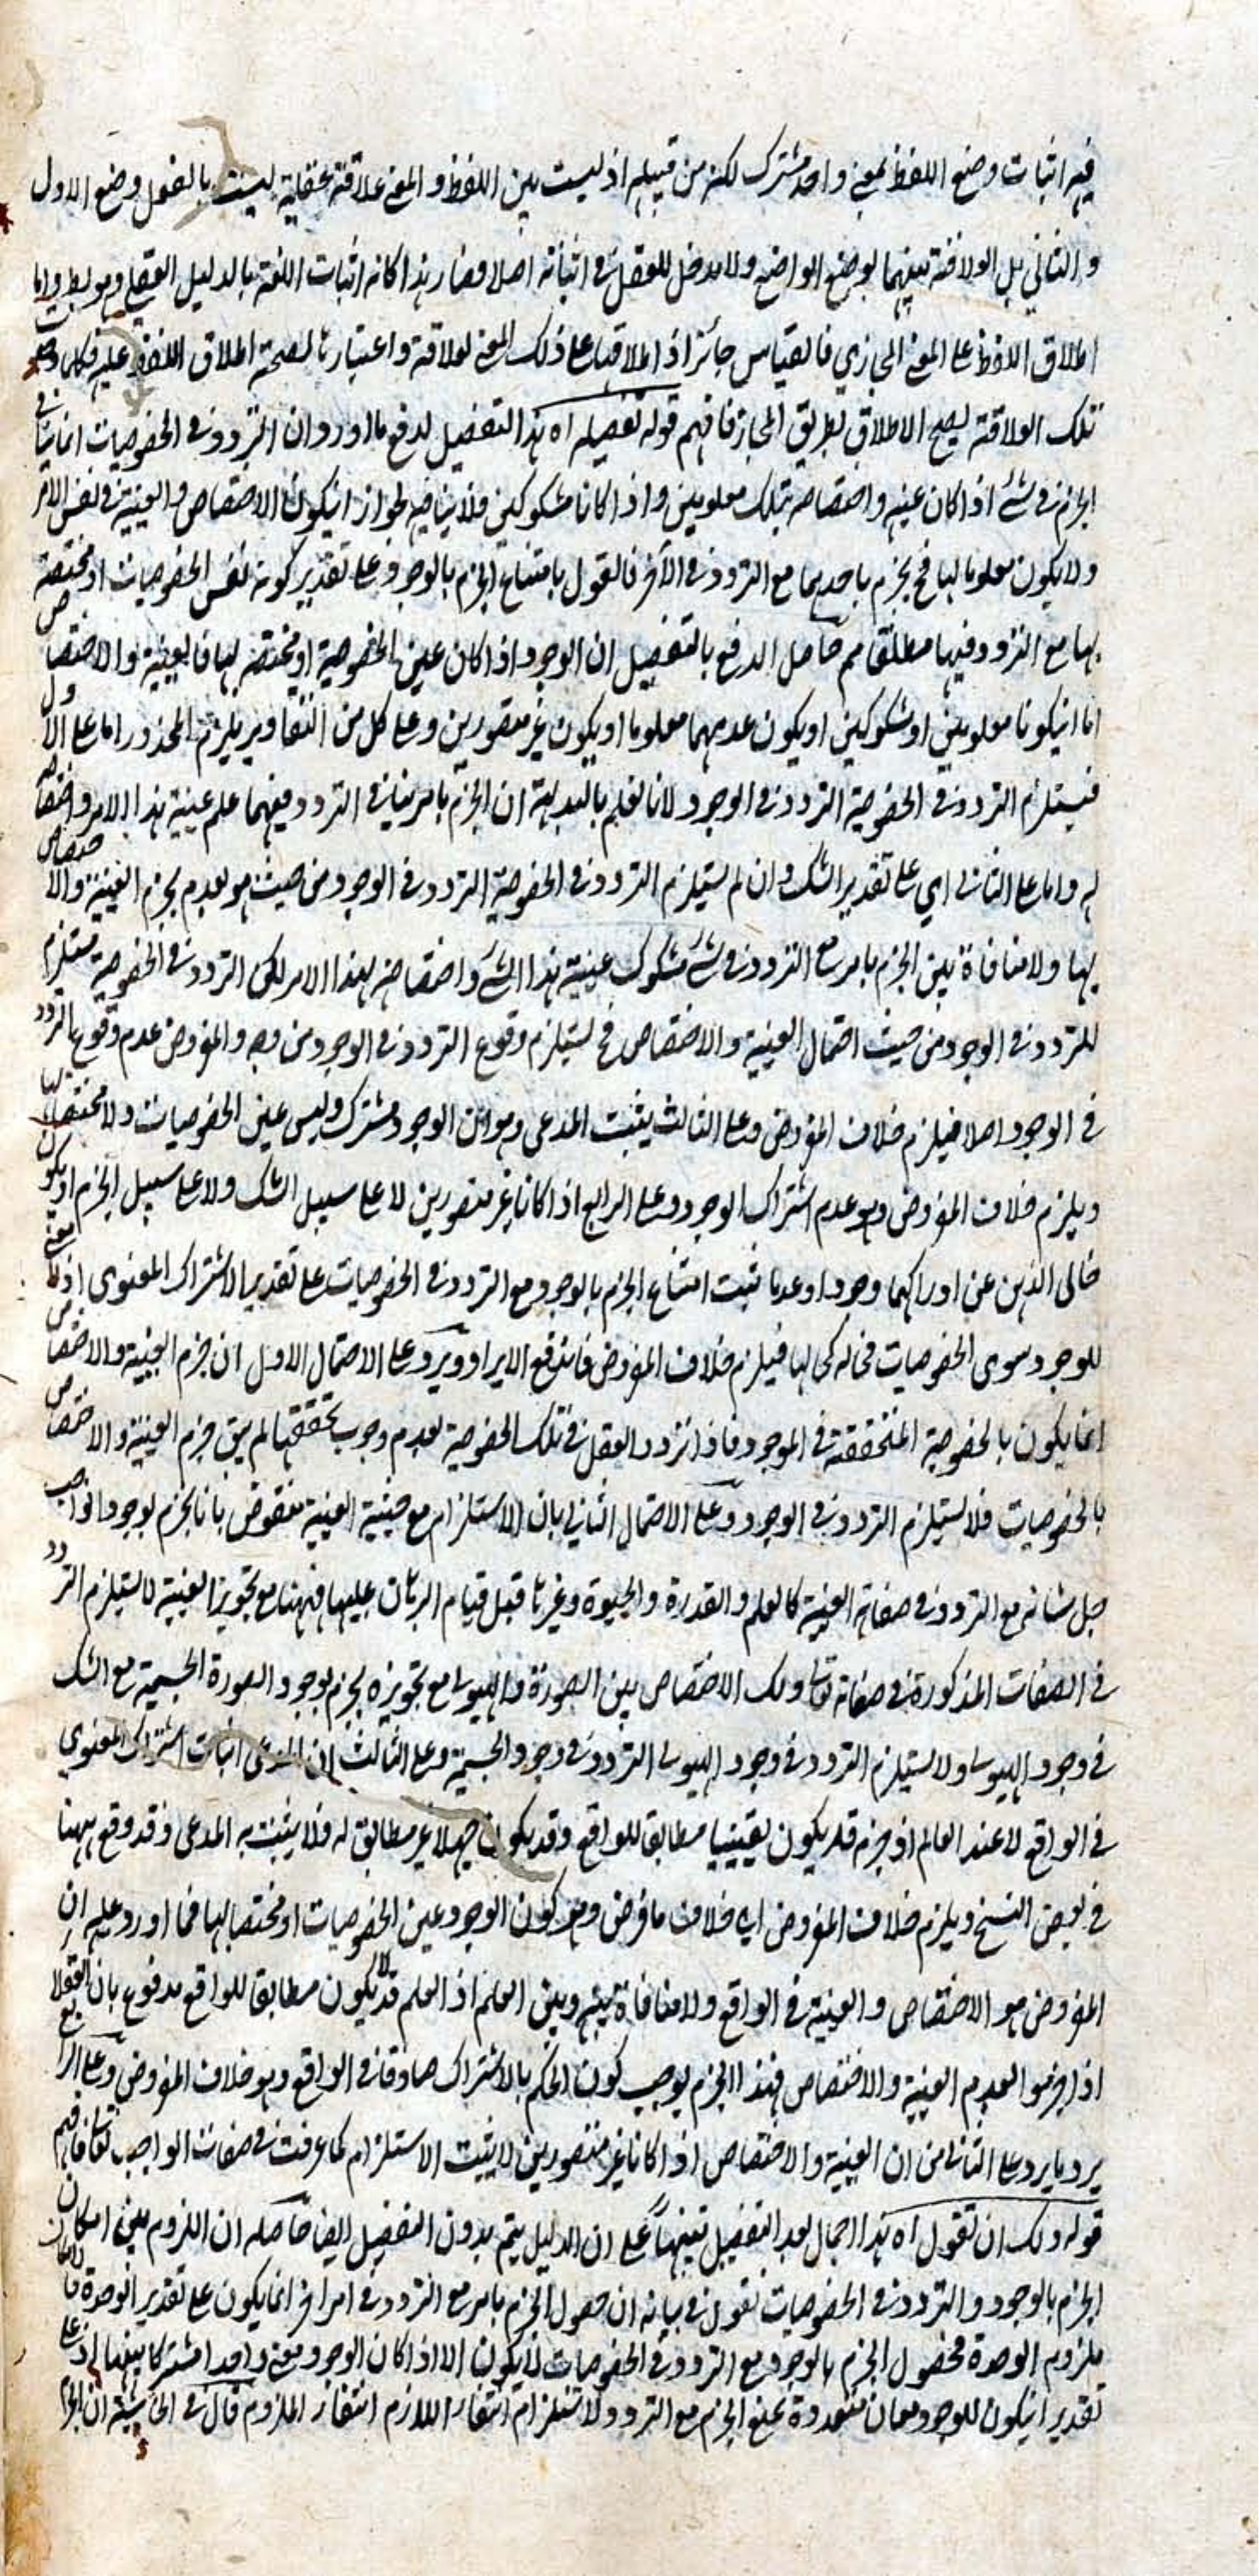 فيه اثبات وضع اللفظ لمعنى واحد مشترك لكنه من قبيله اذ ليست بين اللفظ و المعنى علاقة عقلية ليست بالفعل وضع الاول
و الثاني بل العلاقة بينهما بوضع الواضع ولا مدخل للعقل في اثباته اصلا فصار هذا كانه اثبات اللغة بالدليل العقلي وهو باطل واما
اطلاق اللفظ على المعنى المجازي فالقياس جائز اذ اطلاقنا على ذلك المعنى لعلاقة و اعتبارنا لصحة اطلاق اللفظ عليه فكلما وجد
تلك العلاقة يصح الاطلاق بطريق المجاز فافهم قوله تفصيله اه هذا التفصيل لدفع ما اورد وان التردد في الخصوصيات انما ينافي
الجزم في شئ اذا كان عينه و اختصاصه بتلك معلومين و اذا كانا مشكوكين فلا ينافيه لجواز انيكون الاختصاص و العينية في نفس الامر
ولا يكون معلوما لنا فح يجزم باحدهما مع التردد في الآخر فالقول بامتناع الجزم بالوجود على تقدير كونه نفس الخصوصيات او مختصة
بها مع التردد فيها مطلقا مم حاصل الدفع بالتفصيل ان الوجود اذا كان عين الخصوصية او مختصة لها فالعينية والاختصاص
اما انيكونا معلومين او مشكوكين او يكون عدمهما معلوما او يكون غير متصورين وعلى كل من التقادير يلزم المحذور اما على الاول
فيستلزم التردد في الخصوصية التردد في الوجود لانا نعلم بالبداهة ان الجزم بامر ينافي التردد فيهما علم عينية هذا الامر و اختصاصه
له واما على الثاني اي على تقدير الشك وان لم يستلزم التردد في الخصوصية التردد في الوجود من حيث هو لعدم جزم العينية والاختصاص
بها ولا منافاة بين الجزم بامر مع التردد في شئ مشكوك عينية هذا الشئ و اختصاصه لهذا الامر لكن التردد في الخصوصية مستلزم
للتردد في الوجود من حيث احتمال العينية والاختصاص فح يستلزم وقوع التردد في الوجود من وجه والمفروض عدم وقوع التردد
في الوجود اصلا فيلزم خلاف المفروض وعلى الثالث يثبت المدعى وهو ان الوجود مشترك وليس عين الخصوصيات ولا مختصا لها
ويلزم خلاف المفروض وهو عدم اشتراك الوجود وعلى الرابع اذا كانا غير متصورين لا على سبيل الشك ولا على سبيل الجزم او يكون
خالي الذهن عن ادراكهما وجودا وعدما ثبت امتناع الجزم بالوجود مع التردد في الخصوصيات على تقدير الاشتراك المعنوى اذ لا معنى
للوجود سوى الخصوصيات فيلزم خلاف المفروض فاندفع الايراد ويرد على الاحتمال الاول ان جزم العينية والاختصاص
انما يكون بالخصوصية المتحققة في الموجود فاذا تردد العقل في تلك الخصوصية لعدم وجوب تحققها لم يبق جزم العينية والاختصاص
بالخصوصيات فلا يستلزم التردد في الوجود وعلى الاحتمال الثاني بان الاستلزام مع حيثية العينية منقوض بانا نجزم بوجود الواجب
جل شانه مع التردد في صفاته العينية كالعلم و القدرة و الحيوة و غيرها قبل قيام البرهان عليها فههنا مع تجويز العينية لا يستلزم التردد
في الصفات المذكورة في صفاته تعالى وكذلك الاختصاص بين الصورة والهيولى مع تجويزه يجزم بوجود الصورة الجسمية مع الشك
في وجود الهيولى ولا يستلزم التردد في وجود الهيولى التردد في وجود الجسمية وعلى الثالث ان المدعى اثبات اشتراك المعنوي
في الواقع لا عند العالم اذ جزمه قد يكون يقينيا مطابقا للواقع وقد يكون جهلا غير مطابق له فلا يثبت به المدعى وقد وقع ههنا
في بعض النسخ ويلزم خلاف المفروض اى خلاف ما فرض وهو كون الوجود عين الخصوصيات او مختصا لها فما اورد عليه ان
المفروض هو الاختصاص و العينية في الواقع ولا منافاة بينه وبين العلم اذ العلم قد لا يكون مطابقا للواقع مدفوع بان العقلا
اذا جزموا لعدم العينية والاختصاص فهذا الجزم يوجب كون الحكم بالاشتراك صادقا في الواقع وهو خلاف المفروض وعلى الرابع
يرد ما يرد على الثاني من ان العينية والاختصاص اذا كانا غير متصورين لا يثبت الاستلزام كما عرفت في صفات الواجب تعالى فافهم
قوله ولك ان تقول اه هذا اجمال بعد التفصيل تنبيها على ان الدليل يتم بدون التفصيل ايضا حاصله ان اللزوم بين امكان
الجزم بالوجود و التردد في الخصوصيات نقول في بيانه ان حصول الجزم بامر مع التردد في امر آخر انما يكون على تقدير الوحدة فامكان
ملزوم الوحدة فحصول الجزم بالوجود مع التردد في الخصوصيات لا يكون الا اذا كان الوجود معنى واحدا مشتركا بينها اذ على
تقدير انيكون للوجود معان متعددة يمتنع الجزم مع التردد ولاستلزام انتفاء اللازم انتفاء الملزوم قال في الحاشية ان الجزم